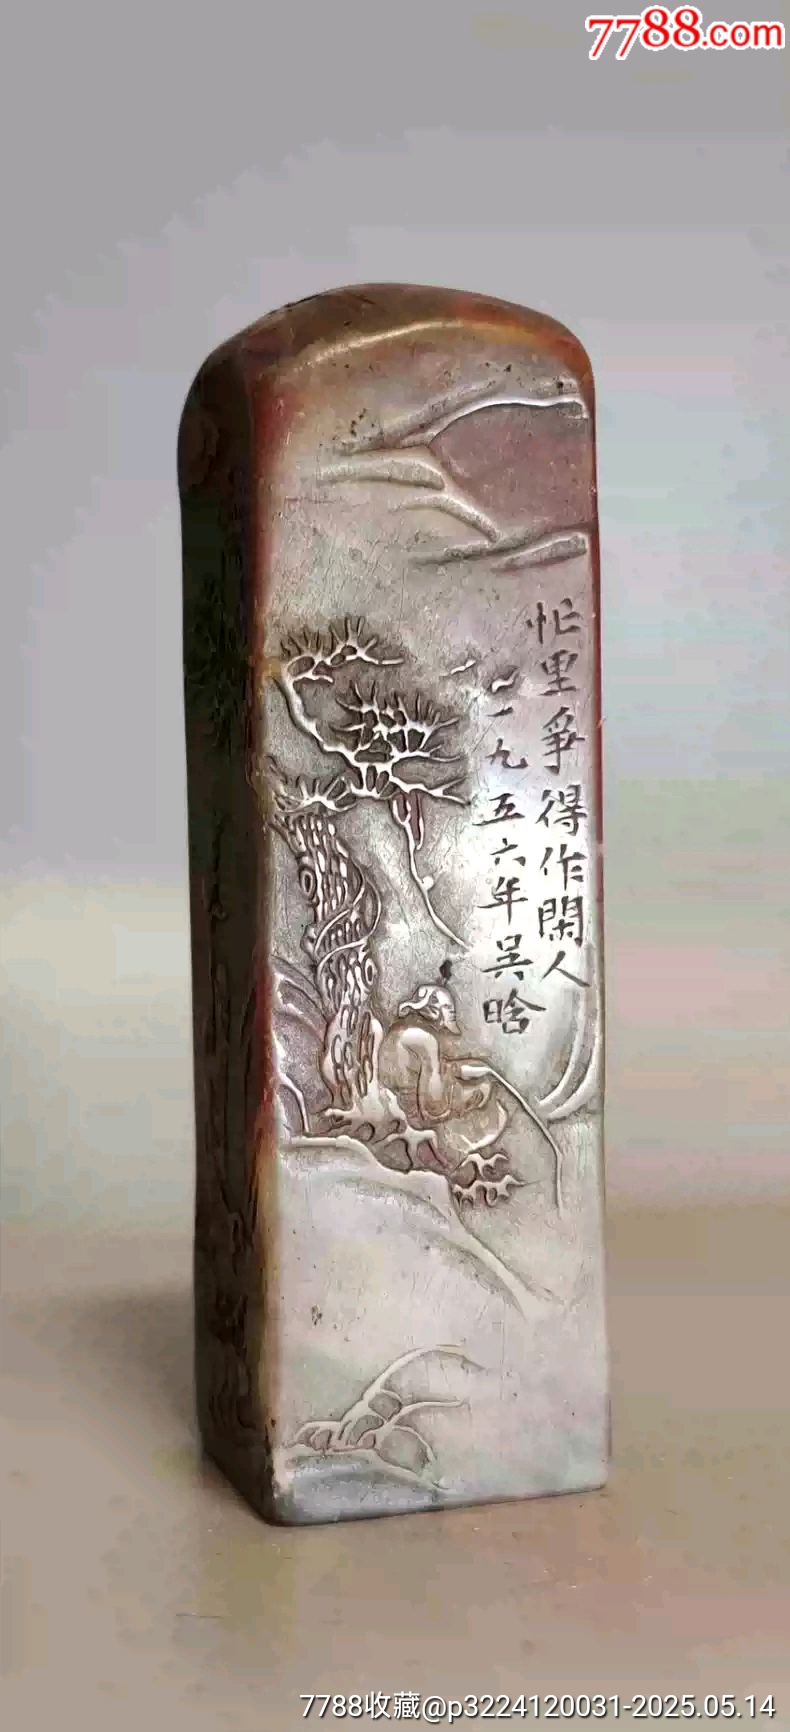 7788.com
忙里爭得作閑人
一九五六年吴晗
7788收藏@p3224120031-2025.05.14